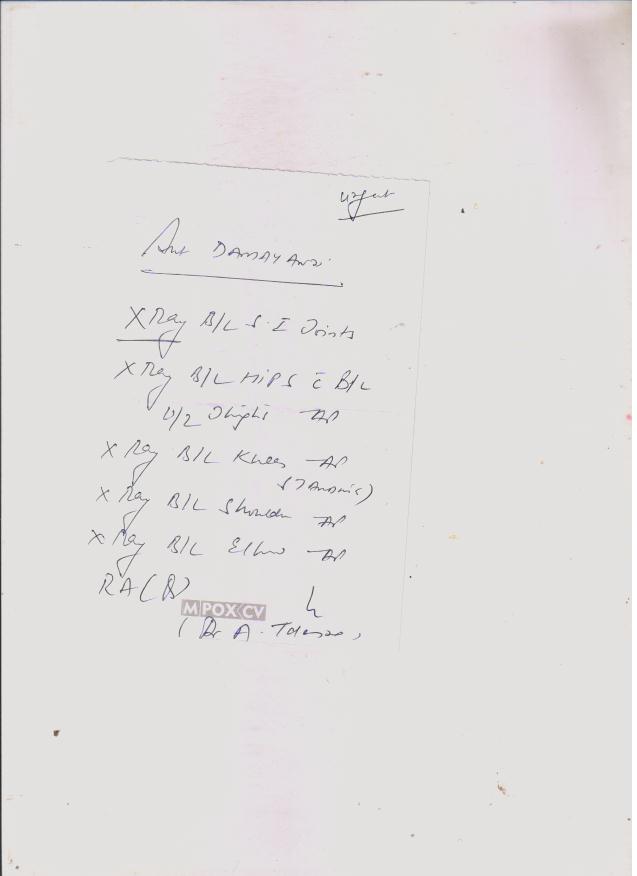 urgent
Smt DAMAYANTI
X Ray B/L S.I Joints
X Ray B/L HIPS c̄ B/L
U/2 Thighs AP
X Ray B/L Knees AP
STANDING)
X Ray B/L Shoulder AP
X Ray B/L Elbow AP
RA (R)
MPOX CV
(Dr A.